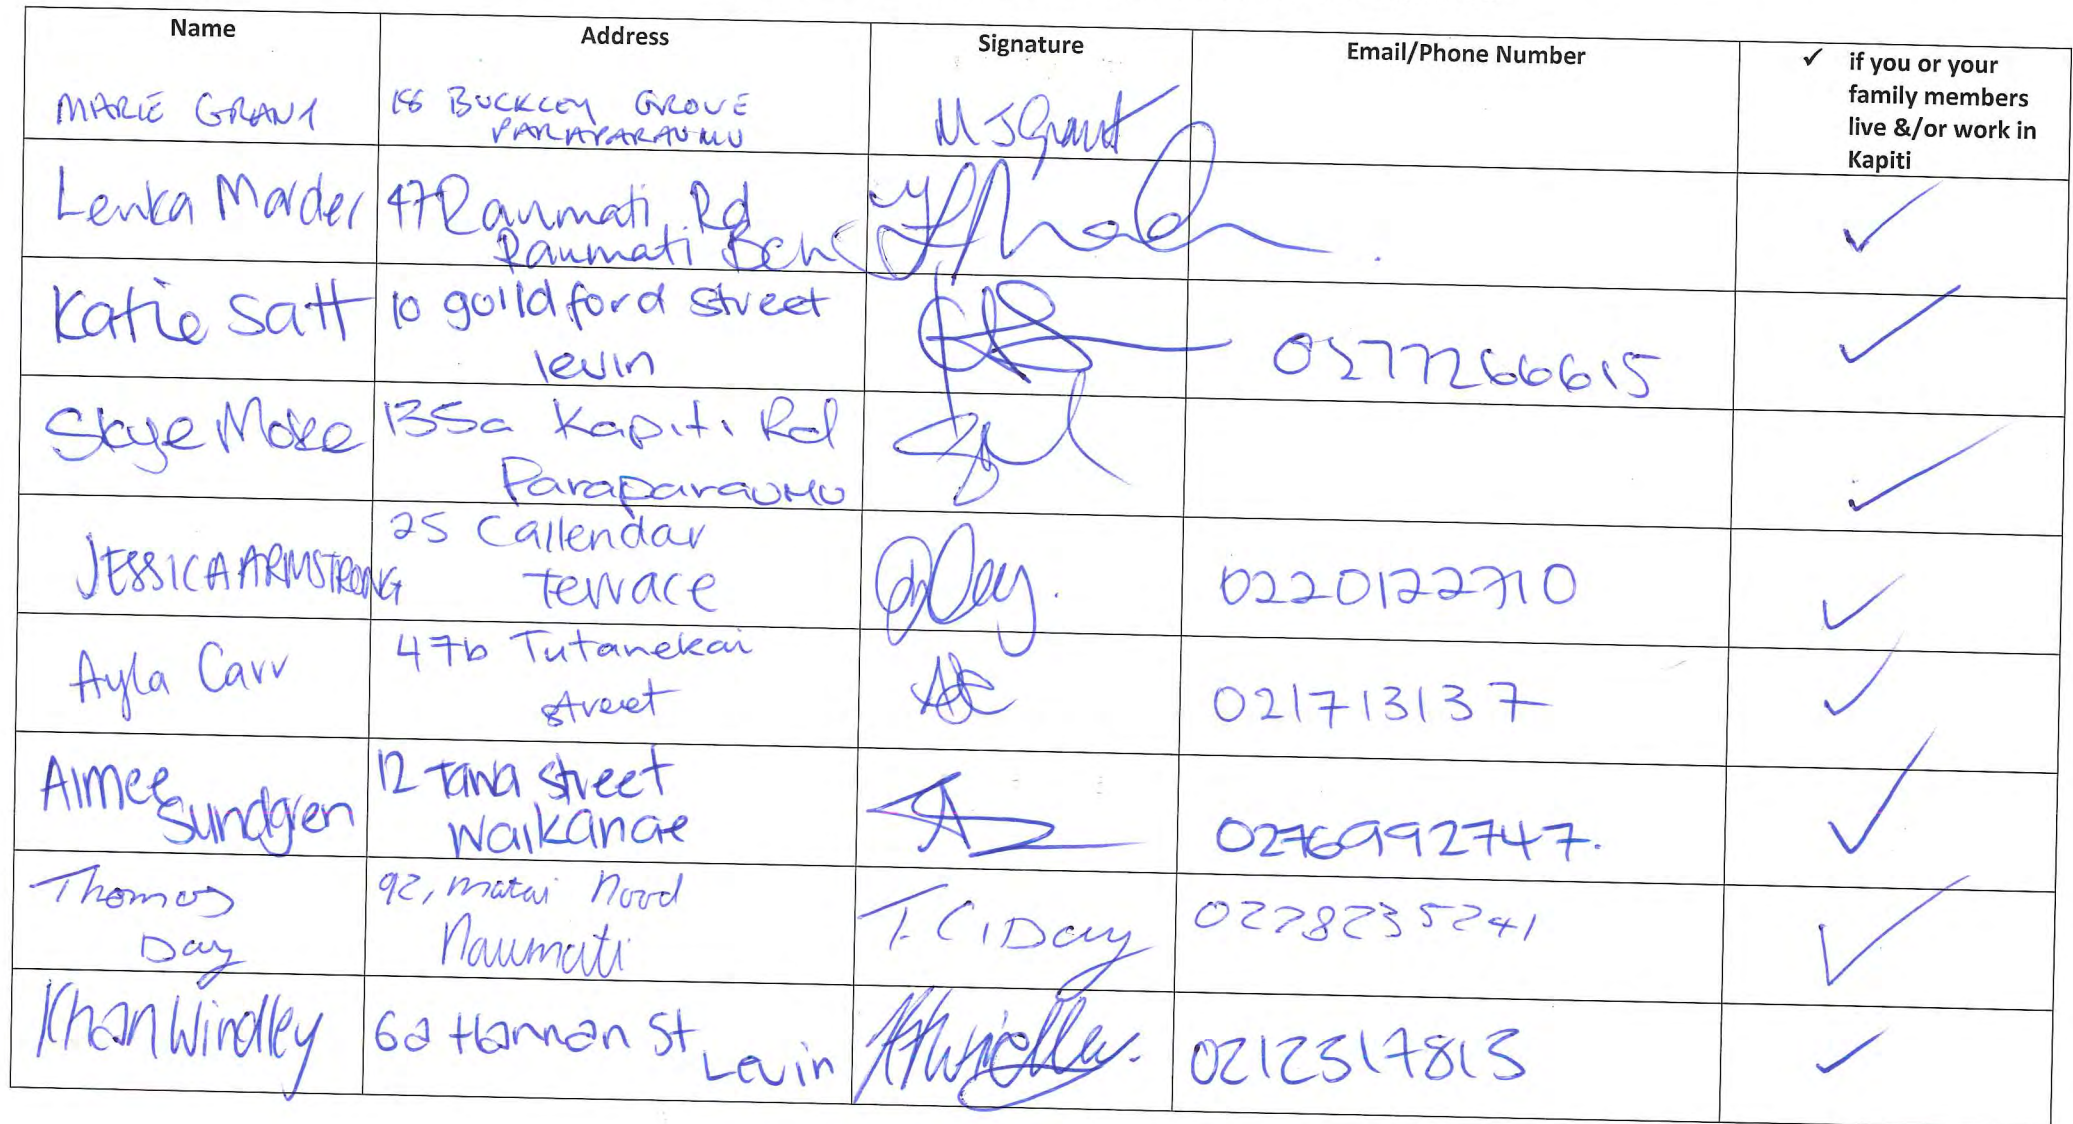 Name Address Signature Email/Phone Number ✓ if you or your
family members
live &/or work in
Kapiti
MARIE GRANT 18 BUCKLEY GROVE
PARAPARAUMU
M J Grant
Lenka Marder 47 Raumati Rd
Raumati Bch
✓
Katie Satt 10 guildford street
levin
0277266615 ✓
Skye Moke 135a Kapiti Rd
Paraparaumu
✓
JESSICA ARMSTRONG 25 Callendar
Terrace
0220122710 ✓
Ayla Carr 47b Tutanekai
street
AC 021713137 ✓
Aimee
Sundgren
12 Tawa street
Waikanae
0276992747. ✓
Thomas
Day
92, matai Road
Raumati
T.C. Day 0278235241 ✓
Khan Windley 62 Hannan St
Levin
0212317813 ✓